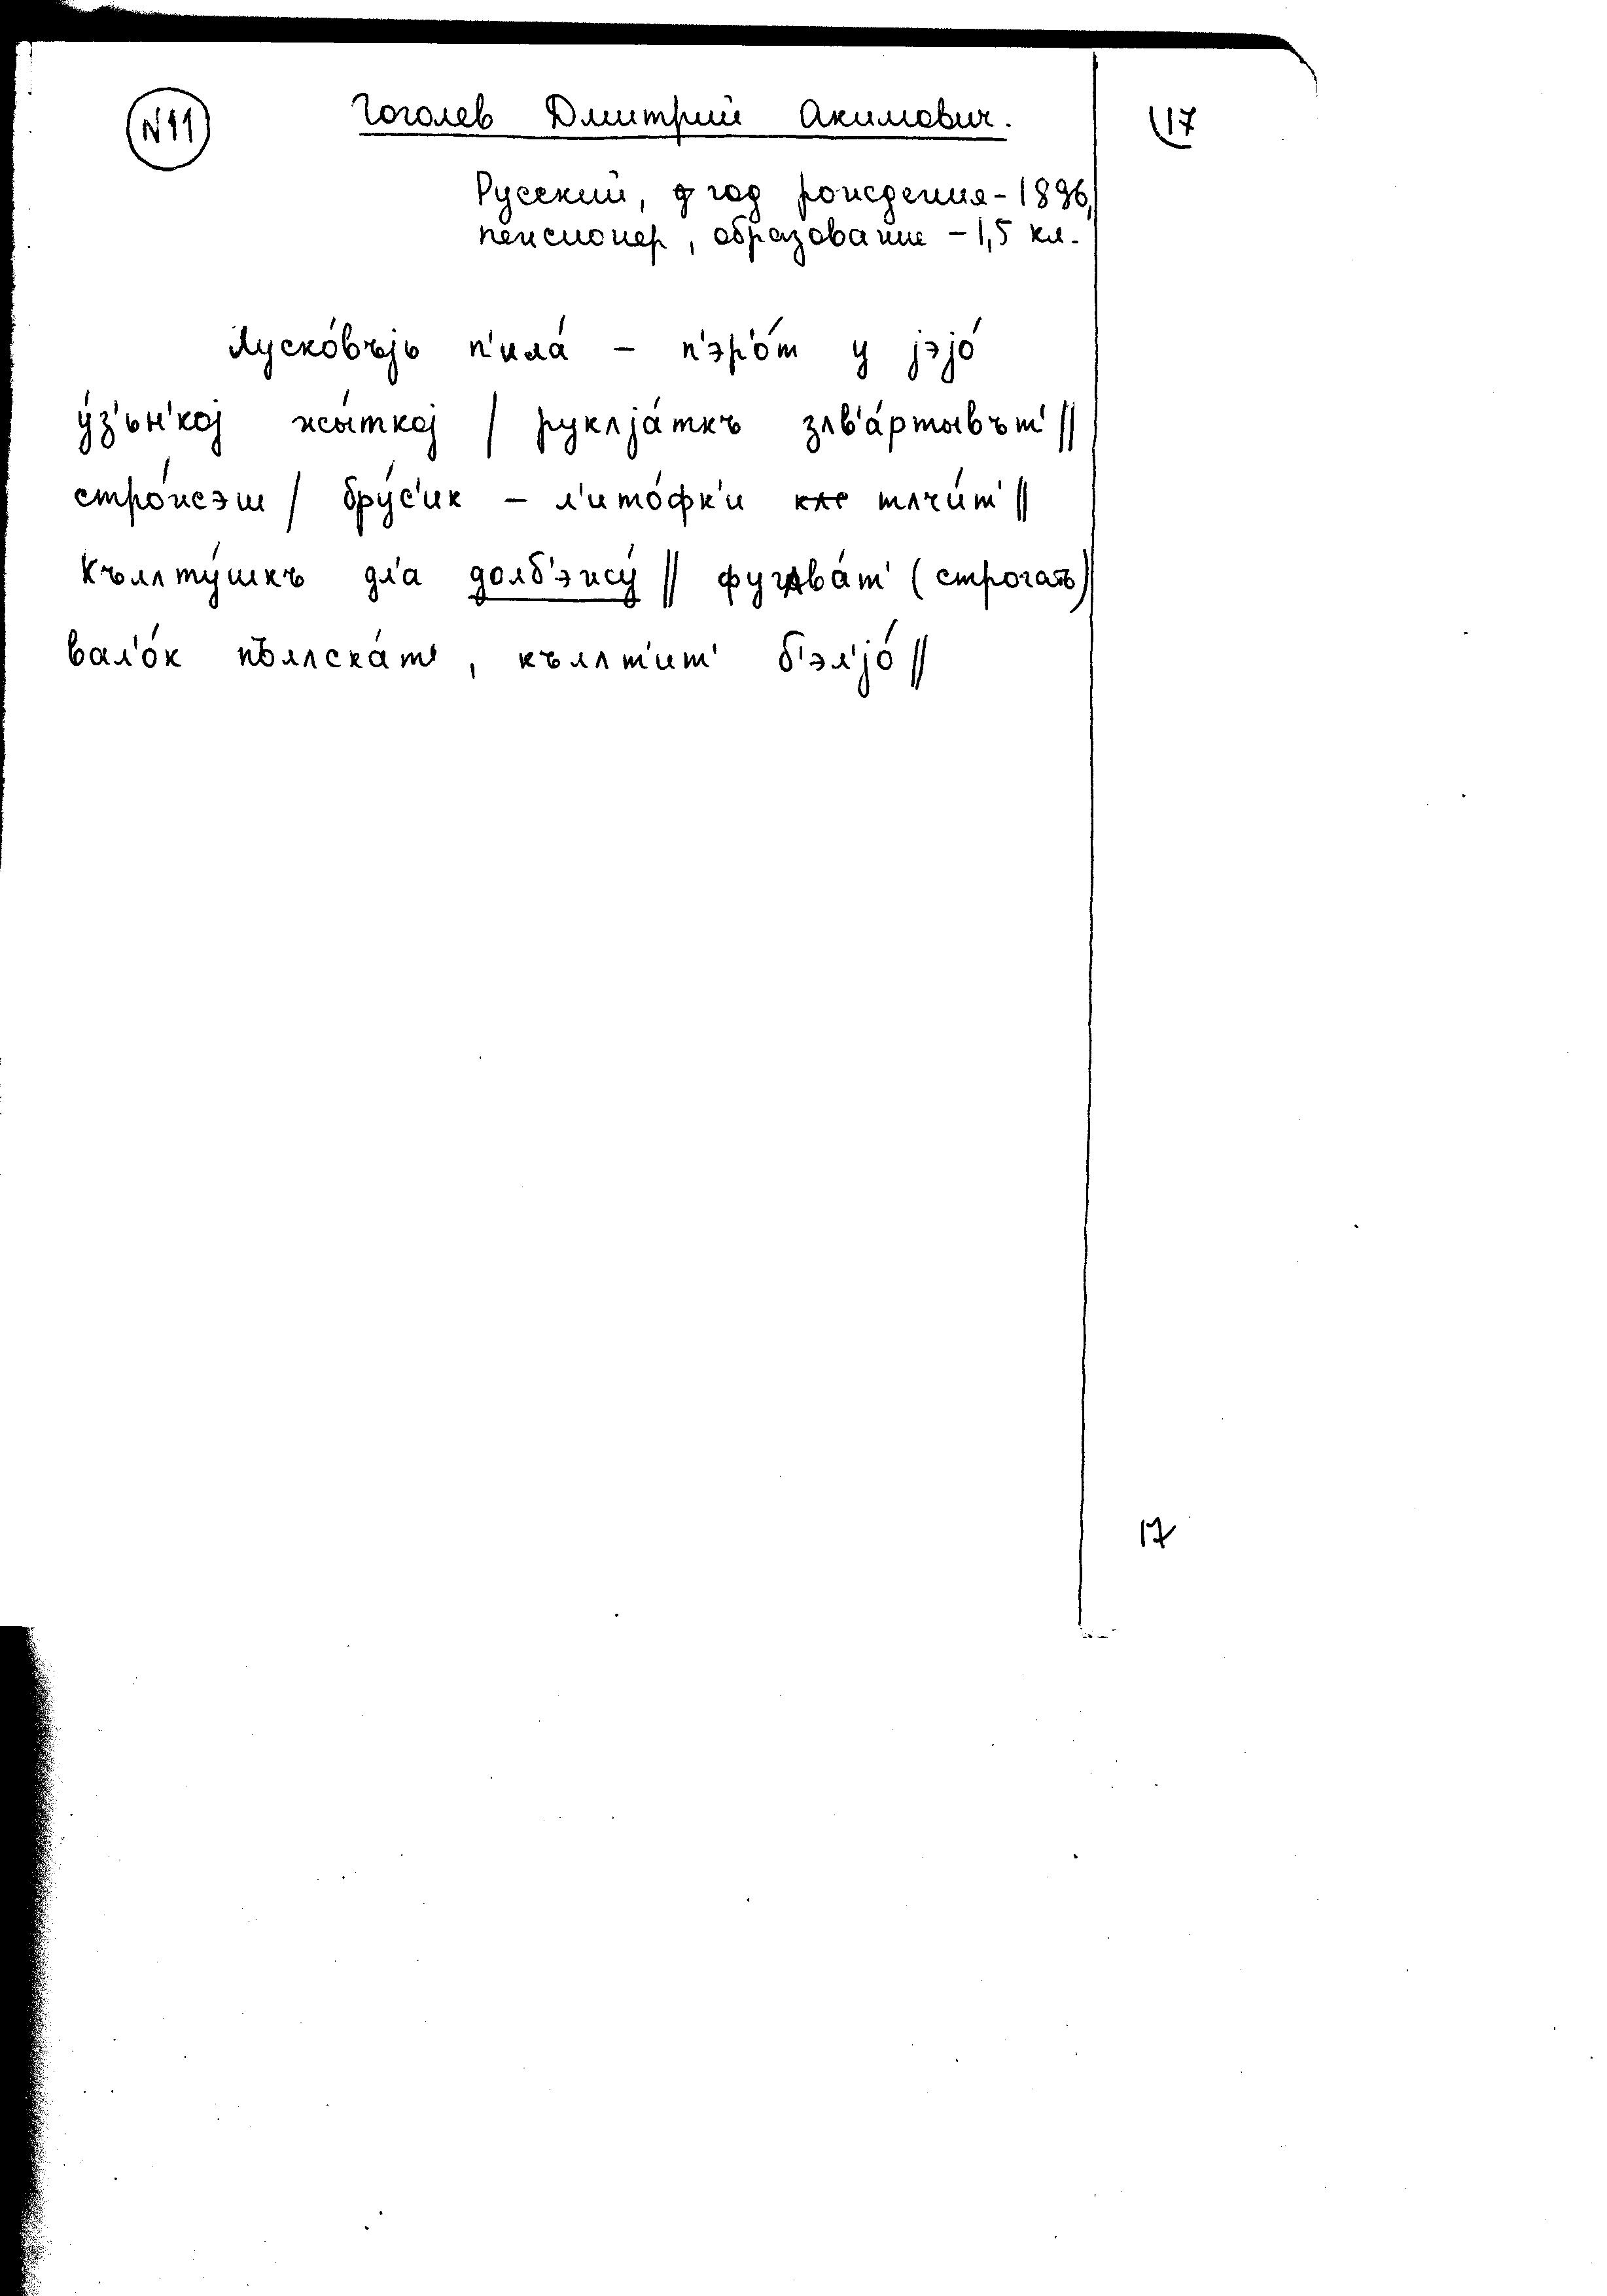 N11
Гоголев Дмитрий Акимович.
17
Русский, год рождения - 1896,
пенсионер, образование - 1,5 кл.
Лускóвъjь п'илá – п'эр'óт у jэjó
ýз'ън'кој жы́ткој / рукʌjáткъ зʌв'áртывът' //
стрóжэш / брýс'ик – л'итóфк'и тʌчи́т' //
Къʌлтýшкъ дл'а долб'эжý // фугʌвáт' (строгать)
вал'óк пълʌскáт', къʌлт'ит' б'эл'jó //
17